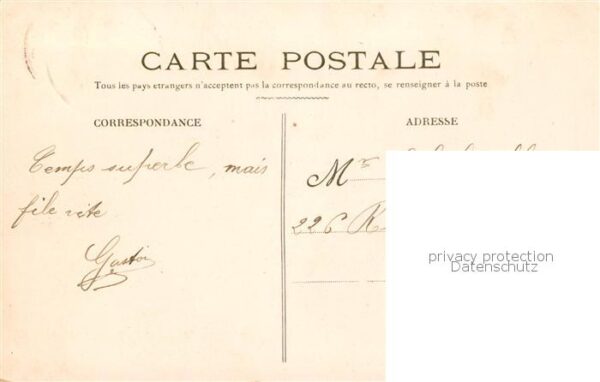 CARTE POSTALE
Tous les pays etrangers n'acceptent pas la correspondance au recto, se renseigner à la poste
CORRESPONDANCE
ADRESSE
Temps superbe, mais
file vite
Gaston
Mr
226 R
privacy protection
Datenschutz